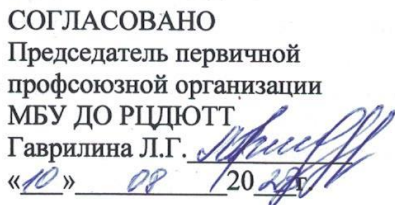 СОГЛАСОВАНО
Председатель первичной
профсоюзной организации
МБУ ДО РЦДЮТТ
Гаврилина Л.Г.
«10» 08 20 г.